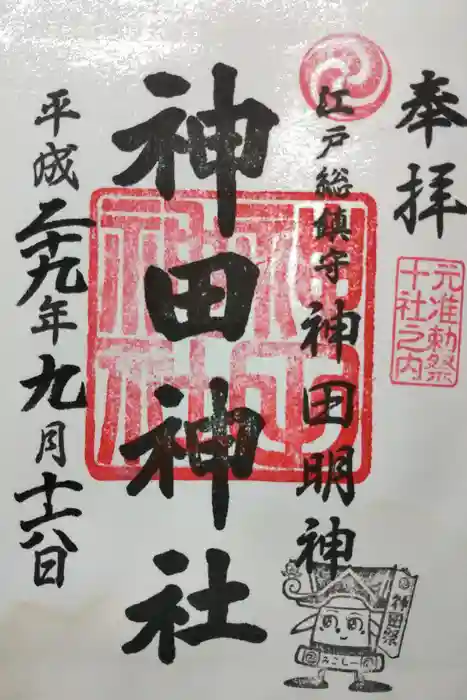 奉拝
元准勅祭
十社之内
江戸総鎮守 神田明神
神田神社
神田
神社
平成二十九年九月十六日
神田祭
みこしー